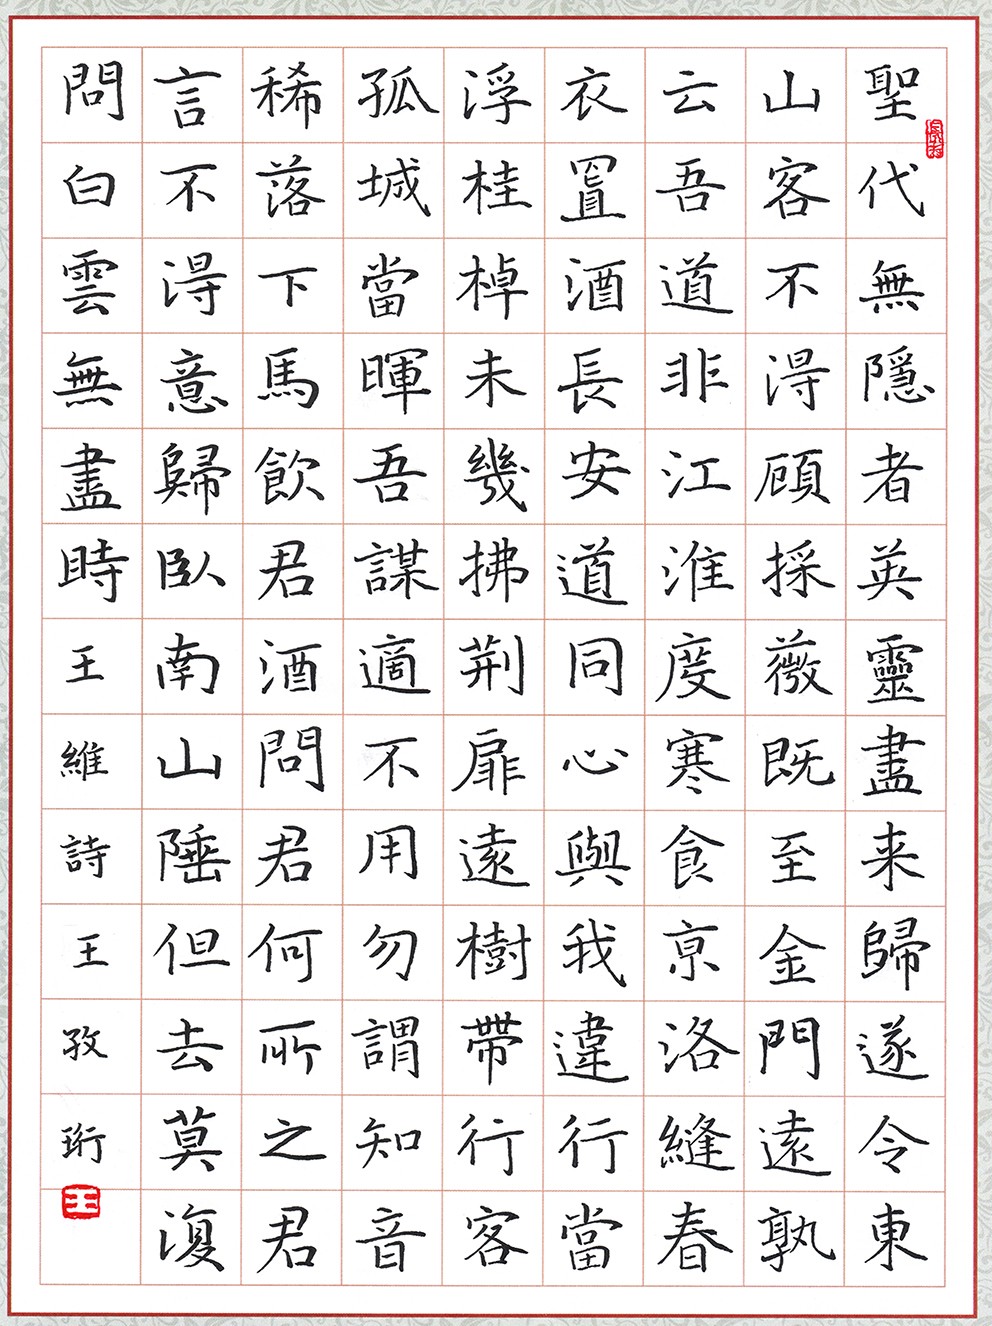 聖代無隱者英靈盡来歸遂令東
山客不得顧採薇既至金門遠孰
云吾道非江淮度寒食亰洛縫春
衣置酒長安道同心與我違行當
浮桂棹未幾拂荆扉遠樹帶行客
孤城當暉吾謀適不用勿謂知音
稀落下馬飲君酒問君何所之君
言不得意歸臥南山陲但去莫復
問白雲無盡時王維詩王孜珩
王